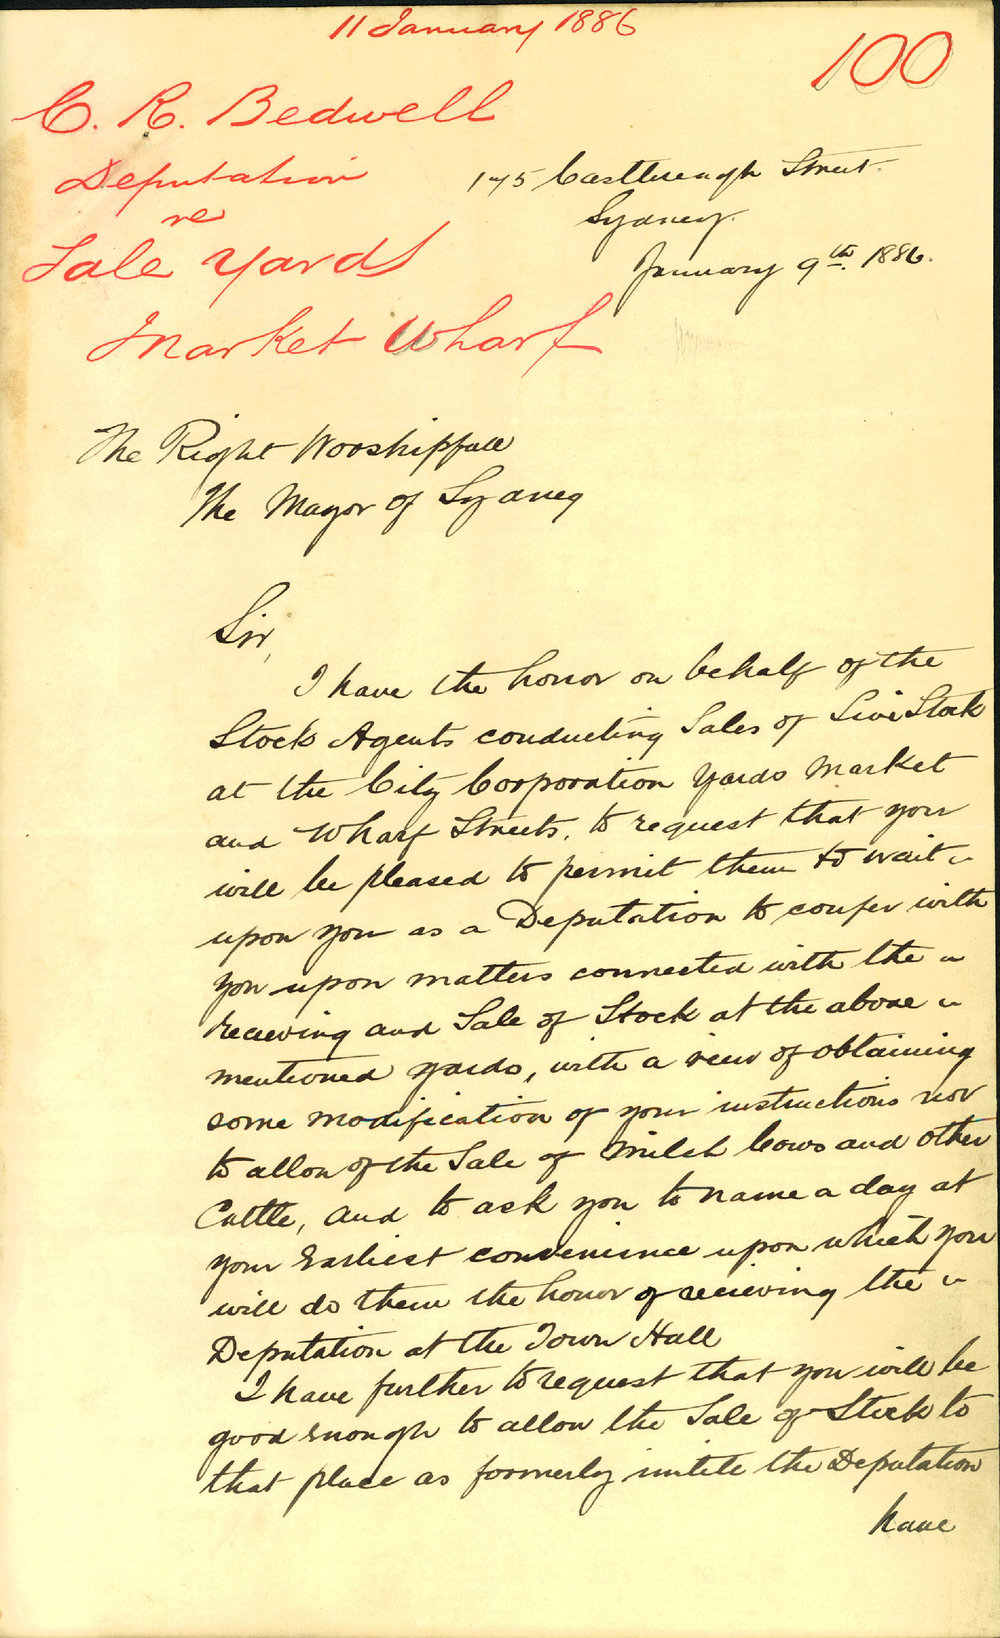 11 January 1886
100
C. R. Bedwell
Deputation
re
Sale Yards
Market Wharf
175 Castlereagh Street.
Sydney.
January 9th. 1886.
The Right Worshipfull
The Mayor of Sydney
Sir,
I have the honor on behalf of the
Stock Agents conducting Sales of Live Stock
at the City Corporation Yards Market
and Wharf Streets. to request that you
will be pleased to permit them to wait
upon you as a Deputation to confer with
you upon matters connected with the
recieving and Sale of Stock at the above
mentioned yards, with a view of obtaining
some modification of your instructions not
to allow of the Sale of Milch Cows and other
Cattle, and to ask you to name a day at
your Earliest convenience upon which you
will do them the honor of recieving the
Deputation at the Town Hall
I have further to request that you will be
good enough to allow the Sale of Stock to
that place as formerly untill the Deputation
have